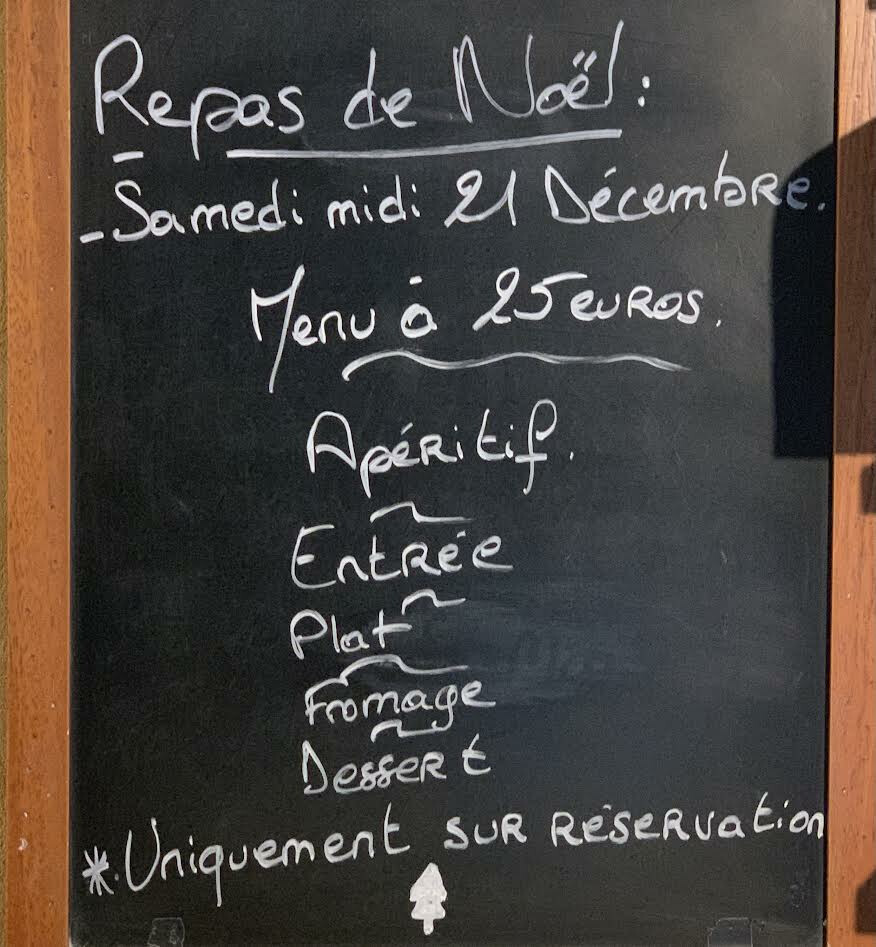 Repas de Noël :
- Samedi midi 21 Décembre.
Menu à 25 euros.
Apéritif.
Entrée
Plat
Fromage
Dessert
*. Uniquement sur réservation